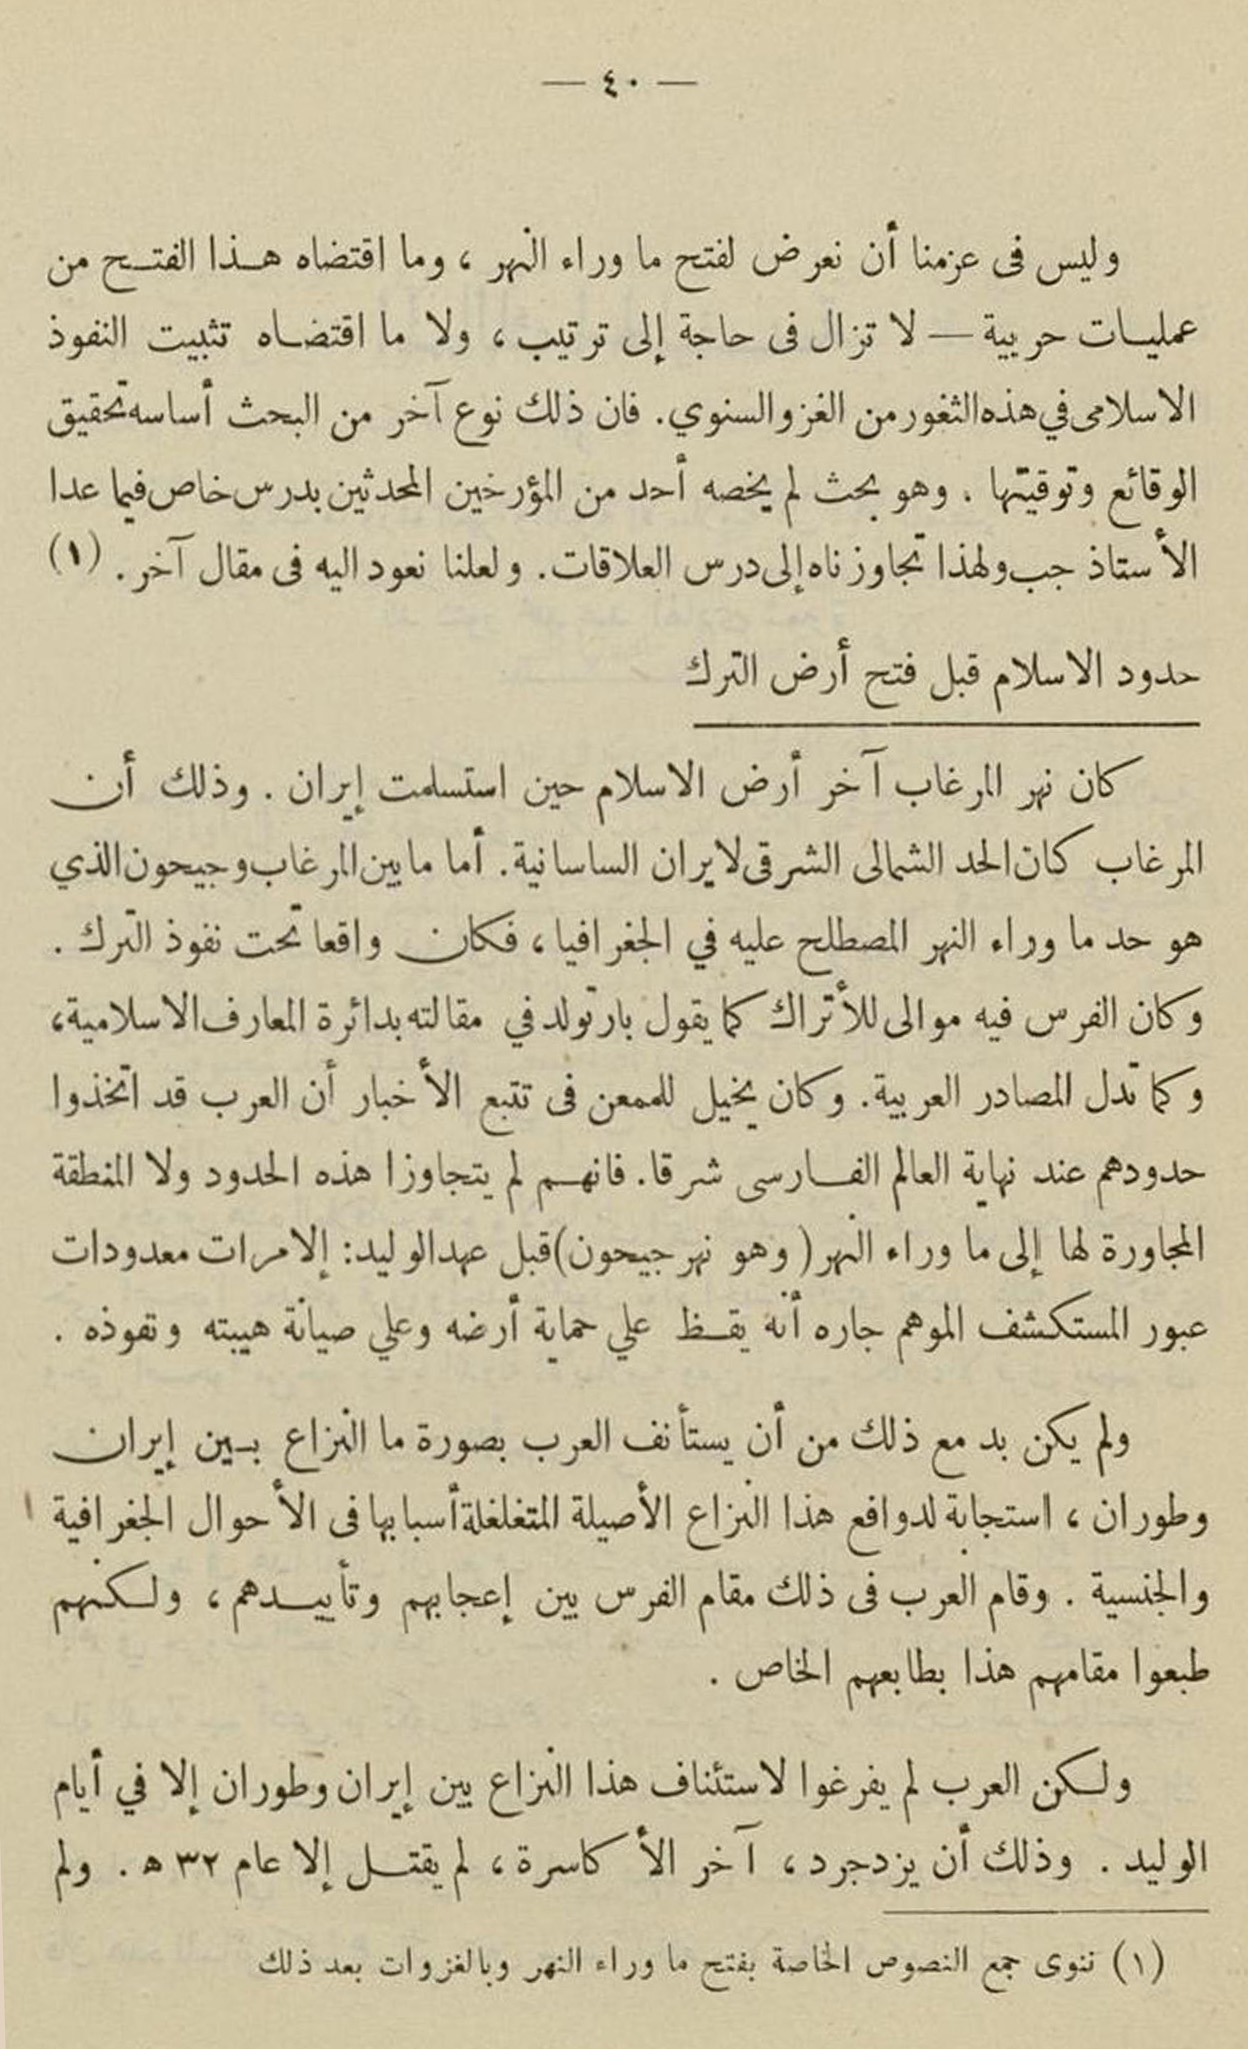 — ٤٠ —
وليس فى عزمنا أن نعرض لفتح ما وراء النهر ، وما اقتضاه هذا الفتح من
عمليات حربية — لا تزال فى حاجة إلى ترتيب ، ولا ما اقتضاه تثبيت النفوذ
الاسلامى في هذه الثغور من الغزو السنوي . فان ذلك نوع آخر من البحث أساسه تحقيق
الوقائع وتوقيتها . وهو بحث لم يخصه أحد من المؤرخين المحدثين بدرس خاص فيما عدا
الأستاذ جب ولهذا تجاوزناه إلى درس العلاقات . ولعلنا نعود اليه فى مقال آخر . (١)
حدود الاسلام قبل فتح أرض الترك
كان نهر المرغاب آخر أرض الاسلام حين استسلمت إيران . وذلك أن
المرغاب كان الحد الشمالى الشرقى لايران الساسانية . أما ما بين المرغاب وجيحون الذي
هو حد ما وراء النهر المصطلح عليه في الجغرافيا ، فكان واقعا تحت نفوذ الترك .
وكان الفرس فيه موالى للأتراك كما يقول بارتولد في مقالته بدائرة المعارف الاسلامية ،
وكما تدل المصادر العربية . وكان يخيل للممعن فى تتبع الأخبار أن العرب قد اتخذوا
حدودهم عند نهاية العالم الفارسى شرقا . فانهم لم يتجاوزا هذه الحدود ولا المنطقة
المجاورة لها إلى ما وراء النهر ( وهو نهر جيحون ) قبل عهد الوليد : إلا مرات معدودات
عبور المستكشف الموهم جاره أنه يقظ علي حماية أرضه وعلي صيانة هيبته ونفوذه .
ولم يكن بد مع ذلك من أن يستأنف العرب بصورة ما النزاع بين إيران
وطوران ، استجابة لدوافع هذا النزاع الأصيلة المتغلغلة أسبابها فى الأحوال الجغرافية
والجنسية . وقام العرب فى ذلك مقام الفرس بين إعجابهم وتأييدهم ، ولكنهم
طبعوا مقامهم هذا بطابعهم الخاص .
ولكن العرب لم يفرغوا لاستئناف هذا النزاع بين إيران وطوران إلا في أيام
الوليد . وذلك أن يزدجرد ، آخر الأكاسرة ، لم يقتل إلا عام ٣٢ ه . ولم
(١) ننوى جمع النصوص الخاصة بفتح ما وراء النهر وبالغزوات بعد ذلك